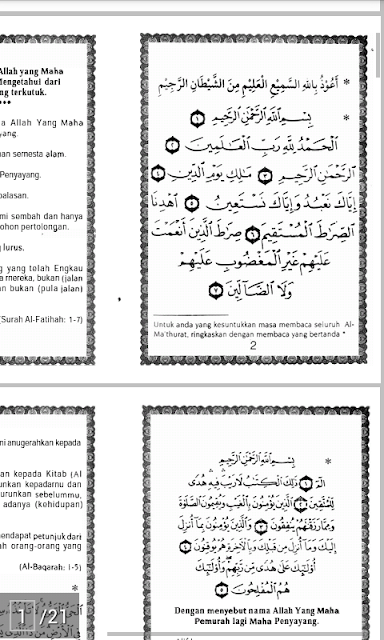 Allah yang Maha
Mengetahui dari
ng terkutuk.
a Allah Yang Maha
yang.
an semesta alam.
Penyayang.
palasan.
mi sembah dan hanya
ohon pertolongan.
lurus.
g yang telah Engkau
a mereka, bukan (jalan
n bukan (pula jalan)
(Surah Al-Fatihah: 1-7)
* أَعُوذُ بِاللهِ السَّمِيعِ الْعَلِيمِ مِنَ الشَّيْطَانِ الرَّجِيمِ
* بِسْمِ اللَّهِ الرَّحْمَٰنِ الرَّحِيمِ ١
الْحَمْدُ لِلَّهِ رَبِّ الْعَالَمِينَ ٢
الرَّحْمَٰنِ الرَّحِيمِ ٣ مَالِكِ يَوْمِ الدِّينِ ٤
إِيَّاكَ نَعْبُدُ وَإِيَّاكَ نَسْتَعِينُ ٥ اهْدِنَا
الصِّرَاطَ الْمُسْتَقِيمَ ٦ صِرَاطَ الَّذِينَ أَنْعَمْتَ
عَلَيْهِمْ غَيْرِ الْمَغْضُوبِ عَلَيْهِمْ
وَلَا الضَّالِّينَ ٧
Untuk anda yang kesuntukkan masa membaca seluruh Al-
Ma'thurat, ringkaskan dengan membaca yang bertanda *
2
ni anugerahkan kepada
an kepada Kitab (Al
unkan kepadamu dan
urunkan sebelummu,
adanya (kehidupan)
endapat petunjuk dari
ah orang-orang yang
(Al-Baqarah: 1-5)
1 /21
* بِسْمِ اللَّهِ الرَّحْمَٰنِ الرَّحِيمِ
الم ١ ذَٰلِكَ الْكِتَابُ لَا رَيْبَ فِيهِ هُدًى
لِلْمُتَّقِينَ ٢ الَّذِينَ يُؤْمِنُونَ بِالْغَيْبِ وَيُقِيمُونَ الصَّلَاةَ
وَمِمَّا رَزَقْنَاهُمْ يُنْفِقُونَ ٣ وَالَّذِينَ يُؤْمِنُونَ بِمَا أُنْزِلَ
إِلَيْكَ وَمَا أُنْزِلَ مِنْ قَبْلِكَ وَبِالْآخِرَةِ هُمْ يُوقِنُونَ ٤
أُولَٰئِكَ عَلَىٰ هُدًى مِنْ رَبِّهِمْ وَأُولَٰئِكَ
هُمُ الْمُفْلِحُونَ ٥
Dengan menyebut nama Allah Yang Maha
Pemurah lagi Maha Penyayang.